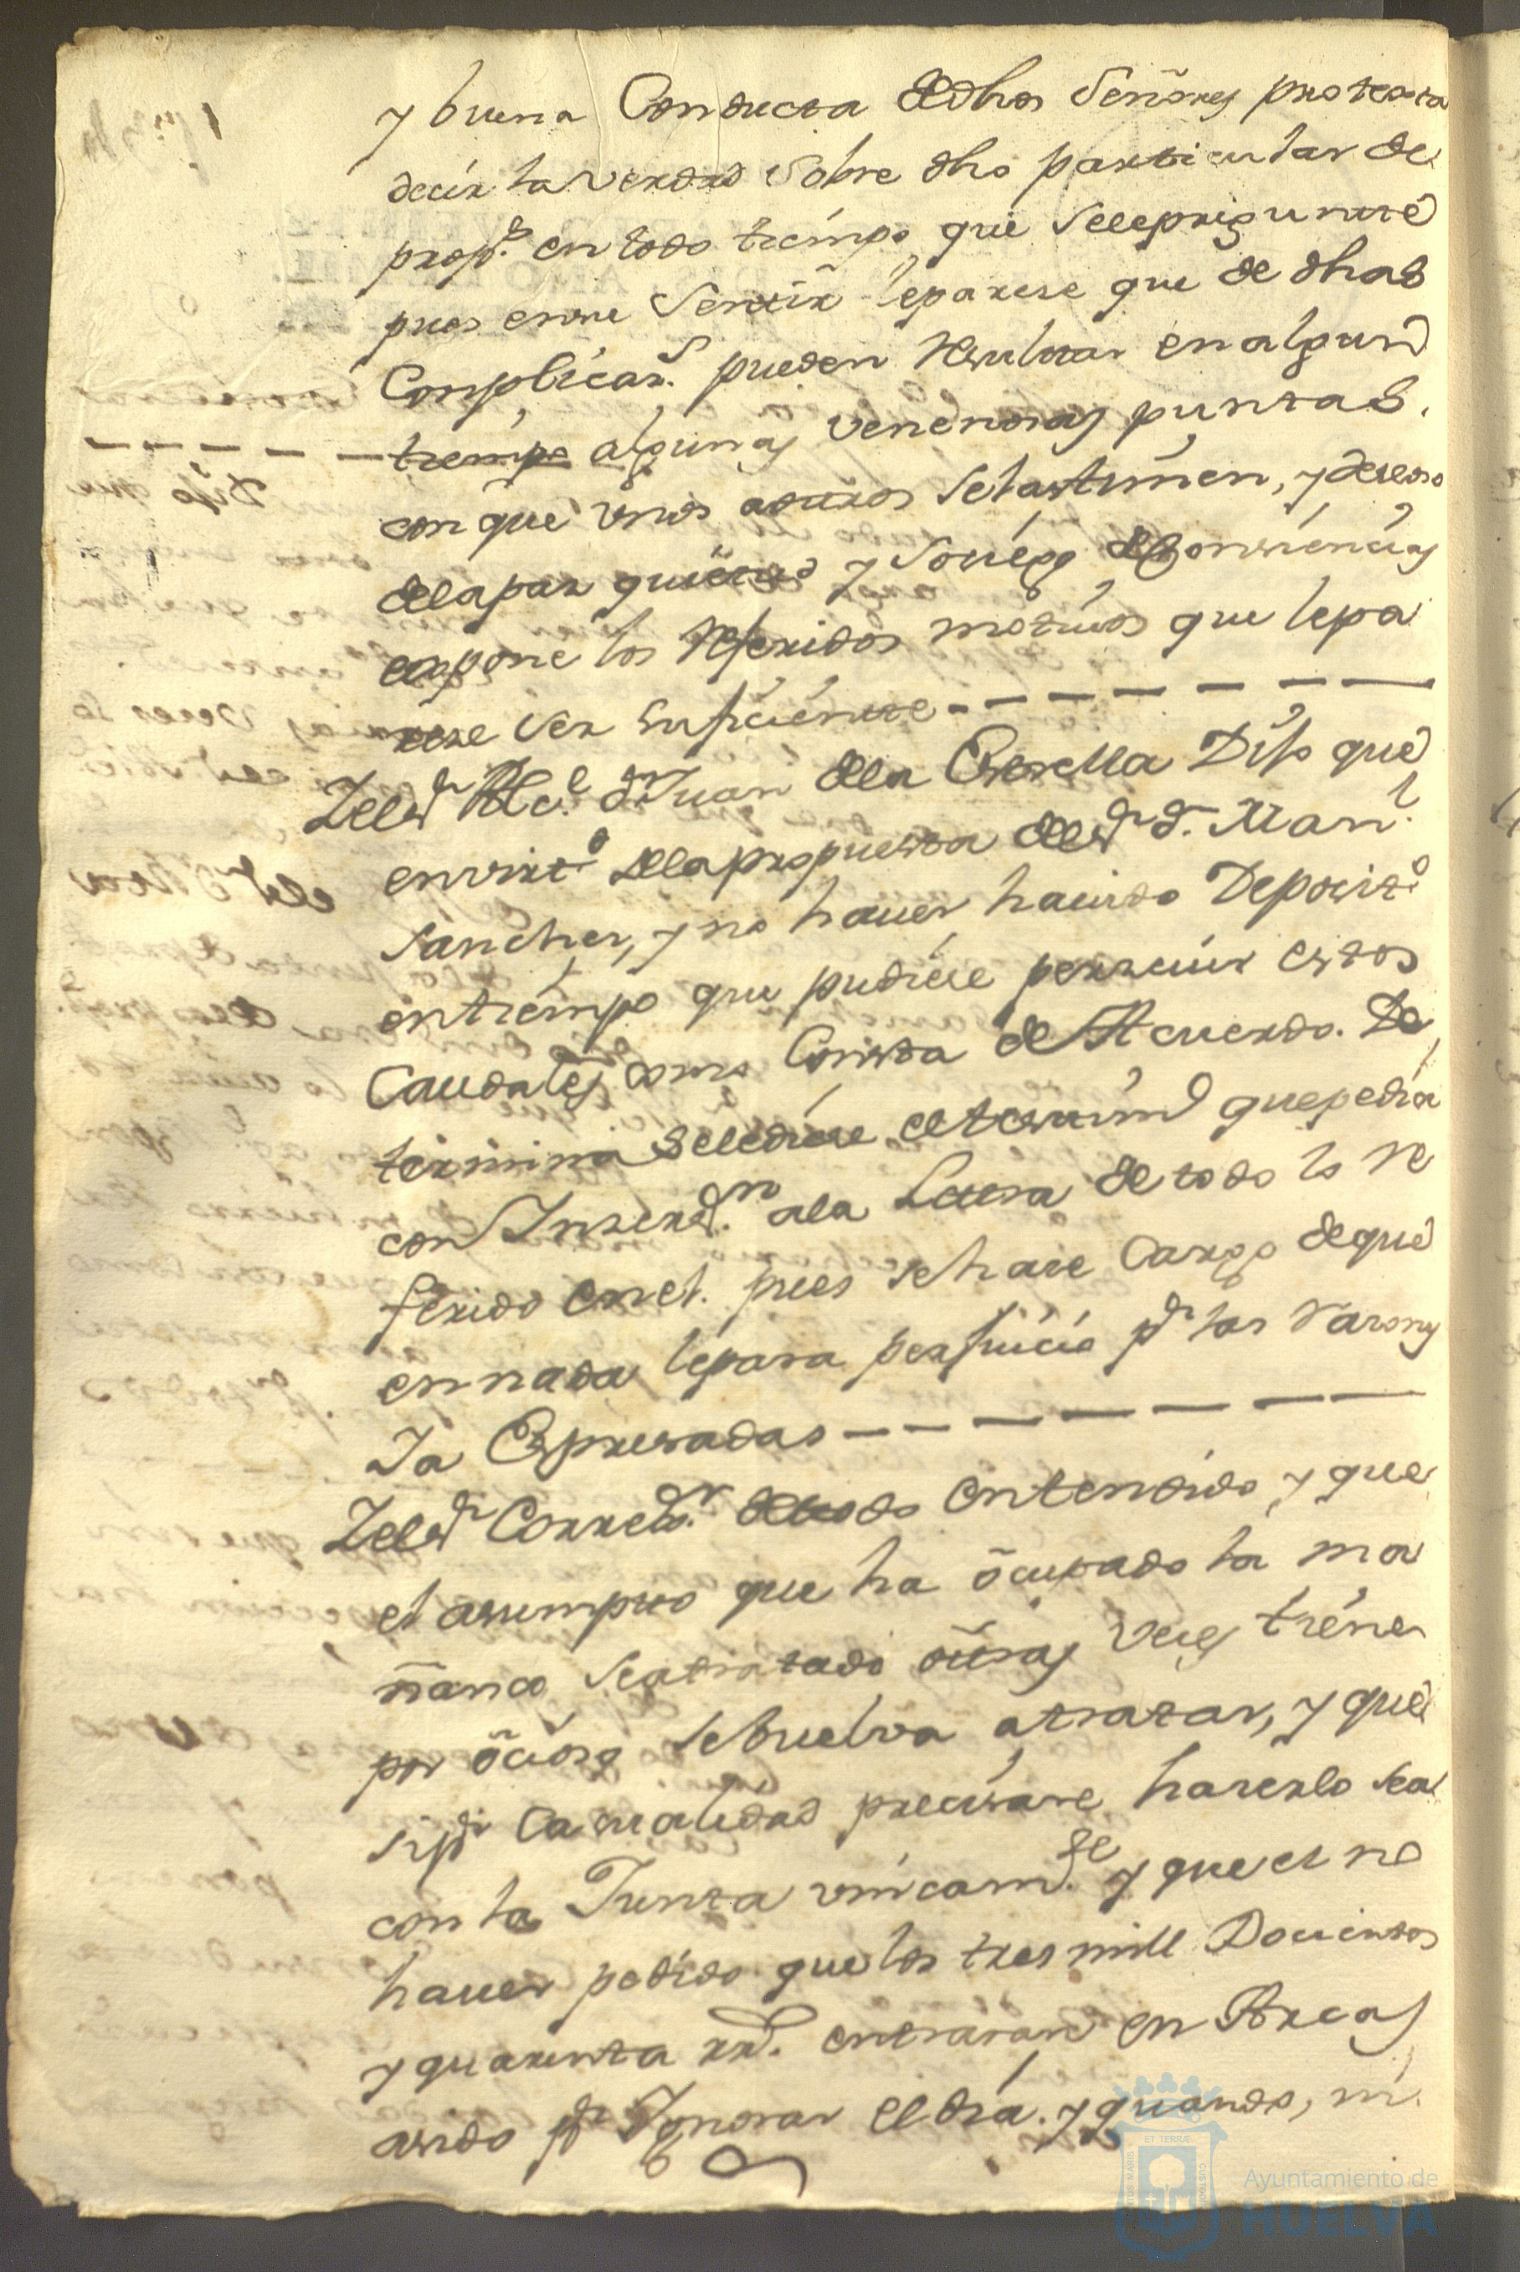 y buena Conducta de dhos Señores protesta
decir la verdad sobre dho particular de
prop.r en todo tiempo que se le preguntaré
pues en su sentir le parese que de dhas
Complicaz.s pueden resultar en algun
tiempo algunas venenosas puntas
con que unos a otros se lastimen, y deseoso
de la paz quietud y sosiego de Consiencias
expone los referidos motivos que le pa
rese ser sufisiente
Y el s.r Alc.l d.n Juan de la Estrella Dijo que
en virt.d de la propuesta del s.r d.n Man.l
Sanches, y no haver havido Deposit.o
en tiempo que pudiese persevir estos
Caudales como Consta de Acuerdo. De
termina se le diese el testim.o que pedia
con Inserz.n a la Letra de todo lo re
ferido en el. pues se hase Cargo de que
en nada le para perjuicio p.r las rasones
Ya Espresadas
Y el s.r Corred.r de todo entendido, y que
el asumpto que ha ocupado la ma
ñana se a tratado otras veces tiene
por ocioso se buelva a tratar, y que
si p.r Casualidad presisare haserlo sea
con la Junta unicam.te y que el no
haver pedido que los tres mill Docientos
y quarenta rr.s entraran en Arcas
a sido p.r Ygnorar el dia. y quando, ni
Ayuntamiento de
HUELVA